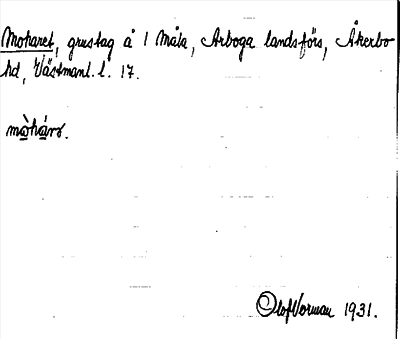 Moharet, grustag å 1 Måla, Arboga landsförs, Åkerbo
hd, Västmanl. l. 17.
mòhárə.
Olof Vorman 1931.